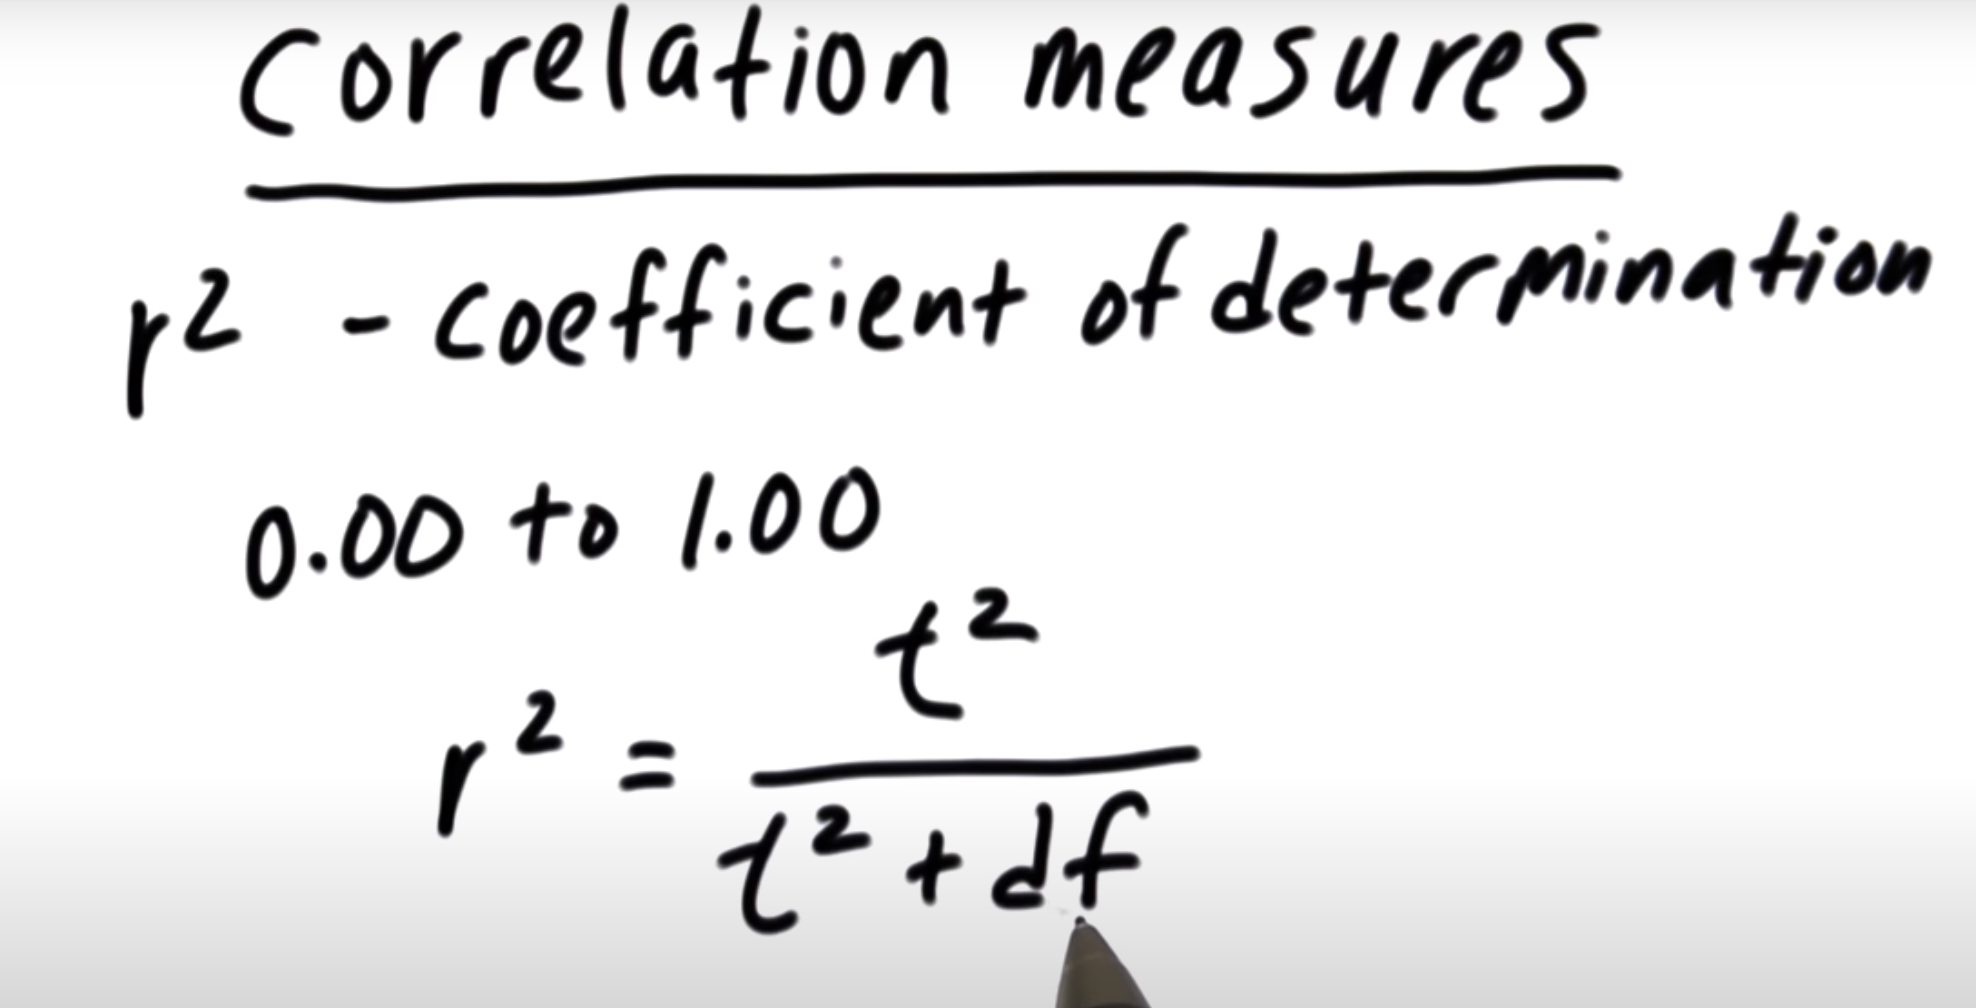 Correlation measures
r² - coefficient of determination
0.00 to 1.00
r² = t² / t² + df